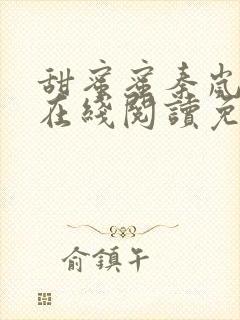 甜蜜蜜秦岚
在綫閱讀免
俞鎮午